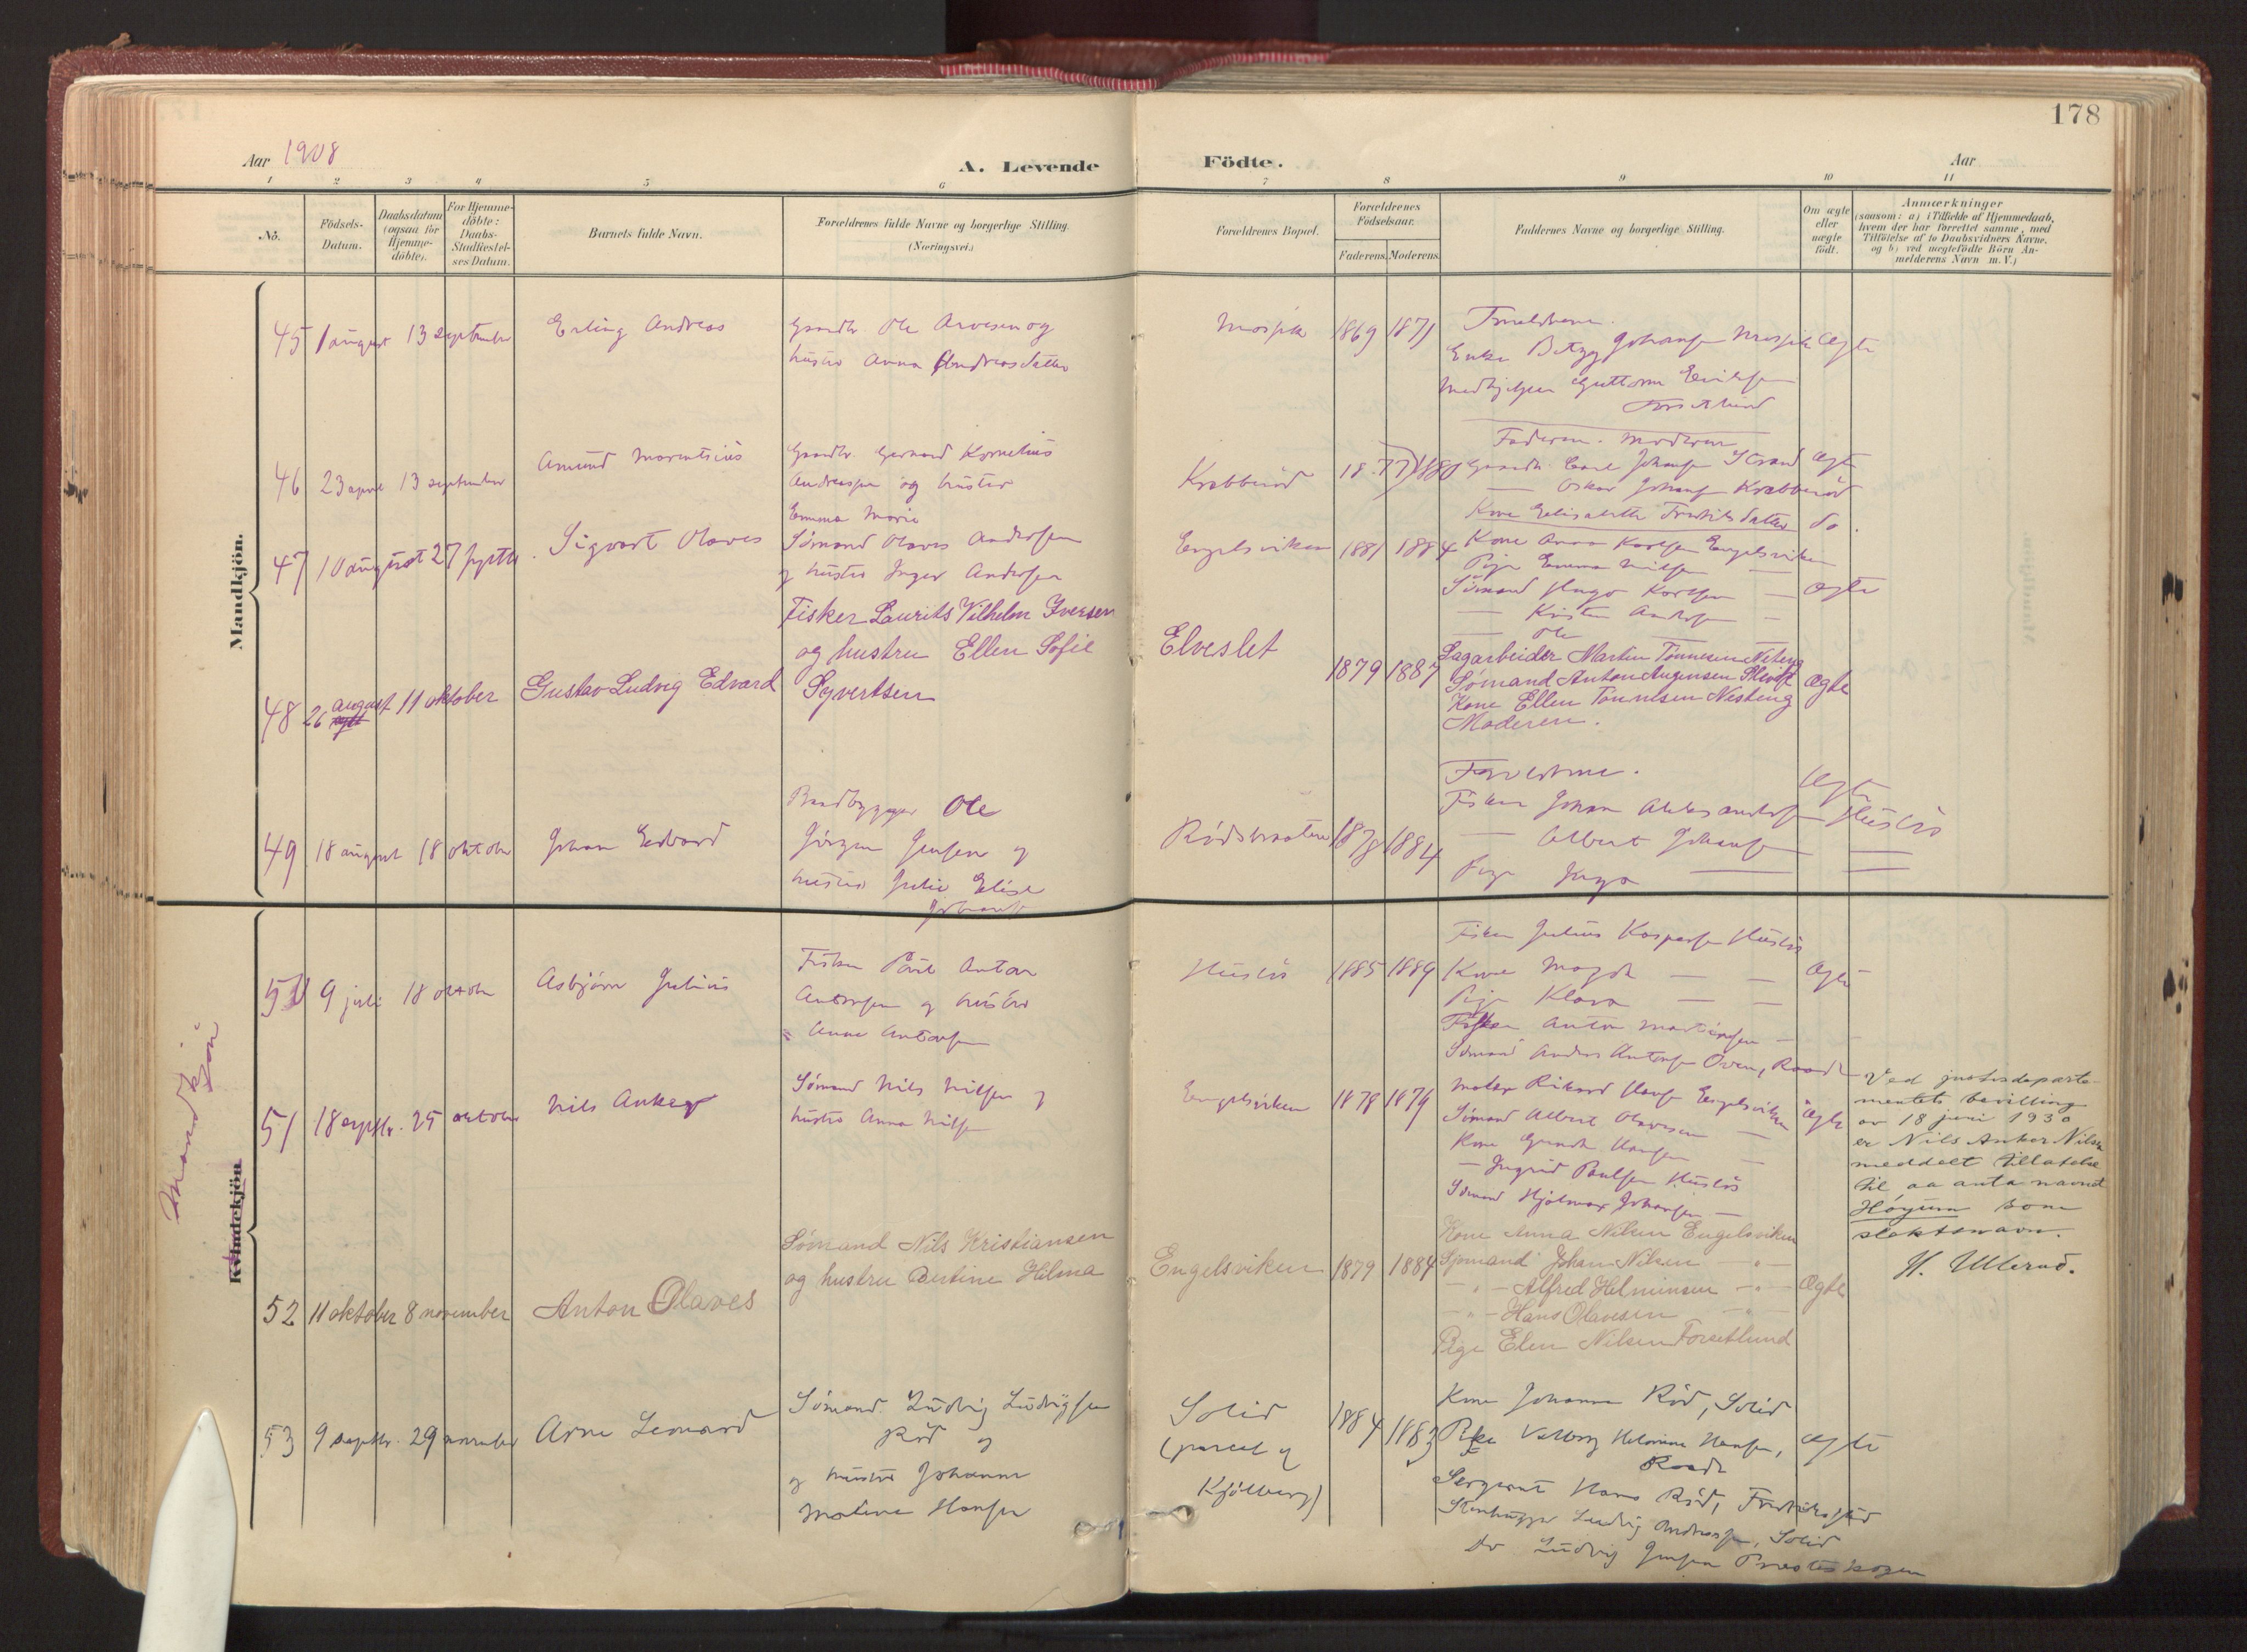 178
Aar 1908
A. Levende
Födte.
Aar
1 2 3 4 5 6 7 8 9 10 11
No.
Födsels-
Datum.
Daabsdatum
(ogsaa for
Hjemme-
döbte).
For Hjemme-
döbte:
Daabs-
Stadfæstel-
ses Datum.
Barnets fulde Navn.
Forældrenes fulde Navne og borgerlige Stilling.
(Næringsvei.)
Forældrenes Bopæl.
Forældrenes
Födselsaar.
Faderens. Moderens.
Faddernes Navne og borgerlige Stilling.
Om ægte
eller
uægte
født.
Anmærkninger
(saasom: a) i Tilfælde af Hjemmedaab,
hvem der har forrettet samme, med
Tilföielse af to Daabsvidners Navne,
og b) ved uægtefödte Börn An-
melderens Navn m. V.)
Mandkjön.
45 1 august 13 september Erling Andreas
Gaardbr Ole Arvesen og
hustru Anna Andreasdatter
1869 1871
Forældrene.
Enke Betzy Johansen ægte
Guttorm
46 23 april 13 september Amund
Gaardbr. Kornelius
Andreassen og hustru
Emma Marie
Krabberöd 1877 1880
Faderen. Moderen
Gaardb. Carl Johansen Strand ægte
Oskar Johansen Krabberöd
Kone Elisabeth do.
47 10 august 27 septbr. Sigvart Olaves
Sömand Olaves Andersen
og hustru Inger Andersen
Engelsviken 1881 1884
Kone Anna Karlsen Engelsviken
Pige Emma Nilsen —
Sömand Hugo Karlsen — ægte
— Kristen Andersen —
— Ole —
48 26 august 11 oktober Gustav Ludvig Edvard
Fisker Laurits Vilhelm Iversen
og hustru Ellen Sofie
Syvertsen
Elveslet
1879 1887
Sagarbeider Martin Tönnesen
Sömand Anton
Kone Ellen Tönnesen Nesteng
Moderen.
ægte
49 18 august 18 oktober Johan Edvard
Baadbygger Ole
Jörgen Jensen og
hustru Julie Elise
1878 1884
Forældrene.
Fisker Johan ægte
— Albert Johansen —
Pige Inga —
Mandkjön
Kvindekjön
50 9 juli 18 oktober Asbjörn Julius
Fisker Paul Anton
Antonsen og hustru
Anna Antonsen
1885 1889
Fisker Julius Kaspersen
Kone Magda — — ægte
Pige Klara — —
Fisker Anton —
Sömand Anders Antonsen Oven, Raade
51 18 septbr. 25 oktober Nils Anker
Sömand Nils Nilsen og
hustru Anna Nilsen
Engelsviken 1878 1879
Maler Rikard Engelsviken ægte
Sömand Albert Olavesen —
Kone —
— Ingrid Paulsen
Sömand Hjalmar Johansen —
Ved justisdeparte-
mentets bevilling
av 18 juni 1930
er Nils Anker Nilsen
meddelt tillatelse
til aa anta navnet
Høyum som
slektsnavn.
H. Ulerud.
52 11 oktober 8 november Anton Olaves
Sömand Nils Kristiansen
og hustru Bertine Hilma
Engelsviken 1879 1884
Kone Anna Nilsen Engelsviken
Sjömand Johan Nilsen — " —
— " — Alfred Helminsen — " — ægte
— " — Hans Olavesen — " —
Pige Elen Nilsen Forsetlund
53 9 septbr. 29 november Arne Leonard
Sömand Ludvig Ludvigsen
Röd og
og hustru Johanne
Matine Hansen
Solid
(parcel af
Kjölberg)
1884 1883
Kone Johanna Röd, Solid
Pike Valborg Hansen, ægte
Raade
Sergeant Hans Röd, Fredrikstad
Stenhugger Ludvig Andreassen, Solid
do Ludvig Jensen Presteskogen